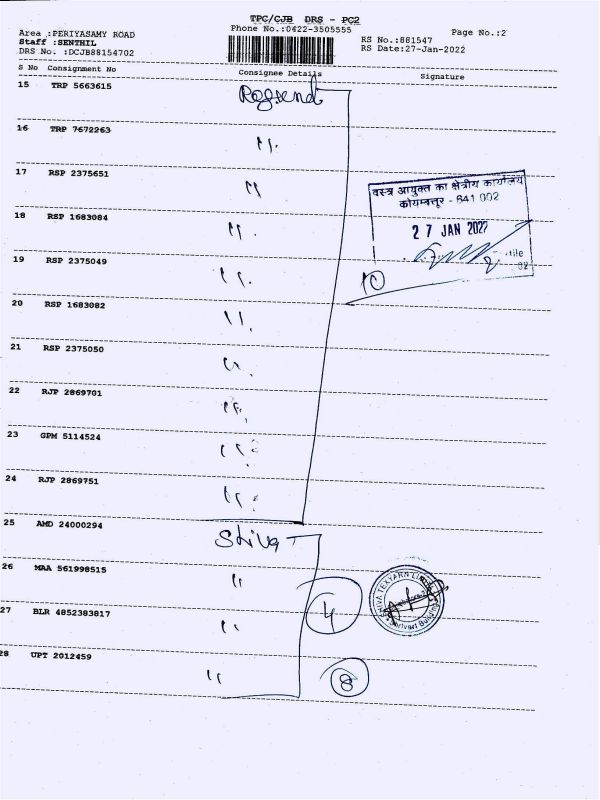 TPC/CJB DRS - PG2
Area :PERIYASAMY ROAD Phone No.:0422-3505555 Page No.:2
Staff :SENTHIL RS No.:881547
DRS No. :DCJB88154702 RS Date:27-Jan-2022
S No Consignment No Consignee Details Signature
15 TRP 5663615
16 TRP 7672263 11.
17 RSP 2375651 11
वस्त्र आयुक्त का क्षेत्रीय कार्यालय
कोयम्बत्तूर - 641 002
18 RSP 1683084 11.
27 JAN 2022
19 RSP 2375049 11.
10
20 RSP 1683082 11.
21 RSP 2375050
22 RJP 2869701
23 GPM 5114524
24 RJP 2869751
25 AMD 24000294 Shiva
26 MAA 561998515 "
SHIVA TEXYARN LIMITED
4
27 BLR 4852383817 "
28 UPT 2012459 "
8